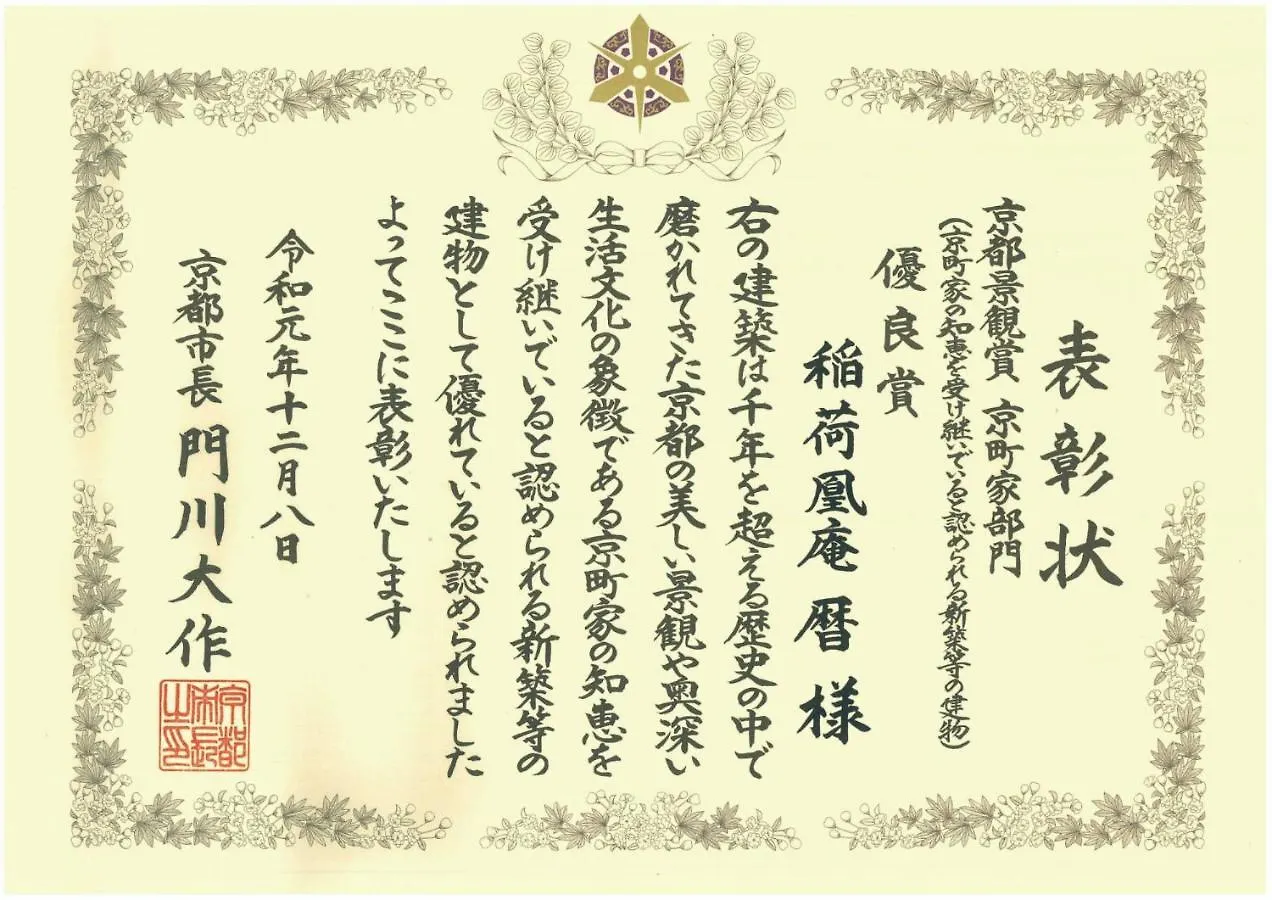 表彰状
京都景観賞 京町家部門
(京町家の知恵を受け継いでいると認められる新築等の建物)
優良賞
稲荷凰庵 暦 様
右の建築は千年を超える歴史の中で
磨かれてきた京都の美しい景観や奥深い
生活文化の象徴である京町家の知恵を
受け継いでいると認められる新築等の
建物として優れていると認められました
よってここに表彰いたします
令和元年十二月八日
京都市長 門川大作
京都市長之印